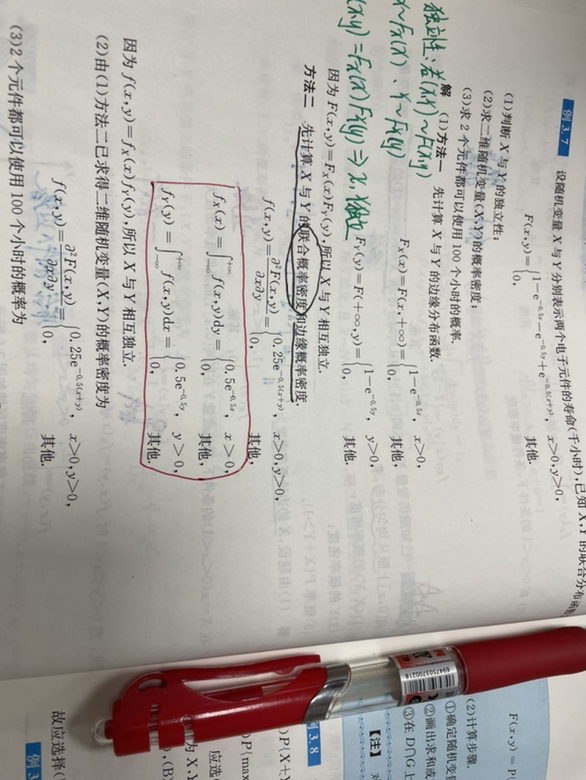 例3.7 设随机变量X与Y分别表示两个电子元件的寿命(千小时),已知X,Y的联合分布函
F(x,y)={1-e^{-0.5x}-e^{-0.5y}+e^{-0.5(x+y)}, x>0,y>0,
0, 其他.
(1)判断X与Y的独立性;
(2)求二维随机变量(X,Y)的概率密度;
(3)求2个元件都可以使用100个小时的概率.
解 (1)方法一 先计算X与Y的边缘分布函数.
F_X(x)=F(x,+∞)={1-e^{-0.5x}, x>0,
0, 其他.
F_Y(y)=F(+∞,y)={1-e^{-0.5y}, y>0,
0, 其他.
因为F(x,y)=F_X(x)F_Y(y),所以X与Y相互独立.
方法二 先计算X与Y的联合概率密度和边缘概率密度.
f(x,y)=∂²F(x,y)/∂x∂y={0.25e^{-0.5(x+y)}, x>0,y>0,
0, 其他,
f_X(x)=∫_{-∞}^{+∞}f(x,y)dy={0.5e^{-0.5x}, x>0,
0, 其他,
f_Y(y)=∫_{-∞}^{+∞}f(x,y)dx={0.5e^{-0.5y}, y>0,
0, 其他.
因为f(x,y)=f_X(x)f_Y(y),所以X与Y相互独立.
(2)由(1)方法二已求得二维随机变量(X,Y)的概率密度为
f(x,y)=∂²F(x,y)/∂x∂y={0.25e^{-0.5(x+y)}, x>0,y>0,
0, 其他.
(3)2个元件都可以使用100个小时的概率为
独立性:若(X,Y)~F(x,y)
X~F_X(x),Y~F_Y(y)
(x,y)=F_X(x)F_Y(y)⇒X,Y独立
F(x,y)=
(2)计算步骤.
①确定随机变
②画出求和或
③在D∩G上
【注】
6947503700218
3.8
P(X+
P{max
为X,
,(B)
应选
故应选择(
例3